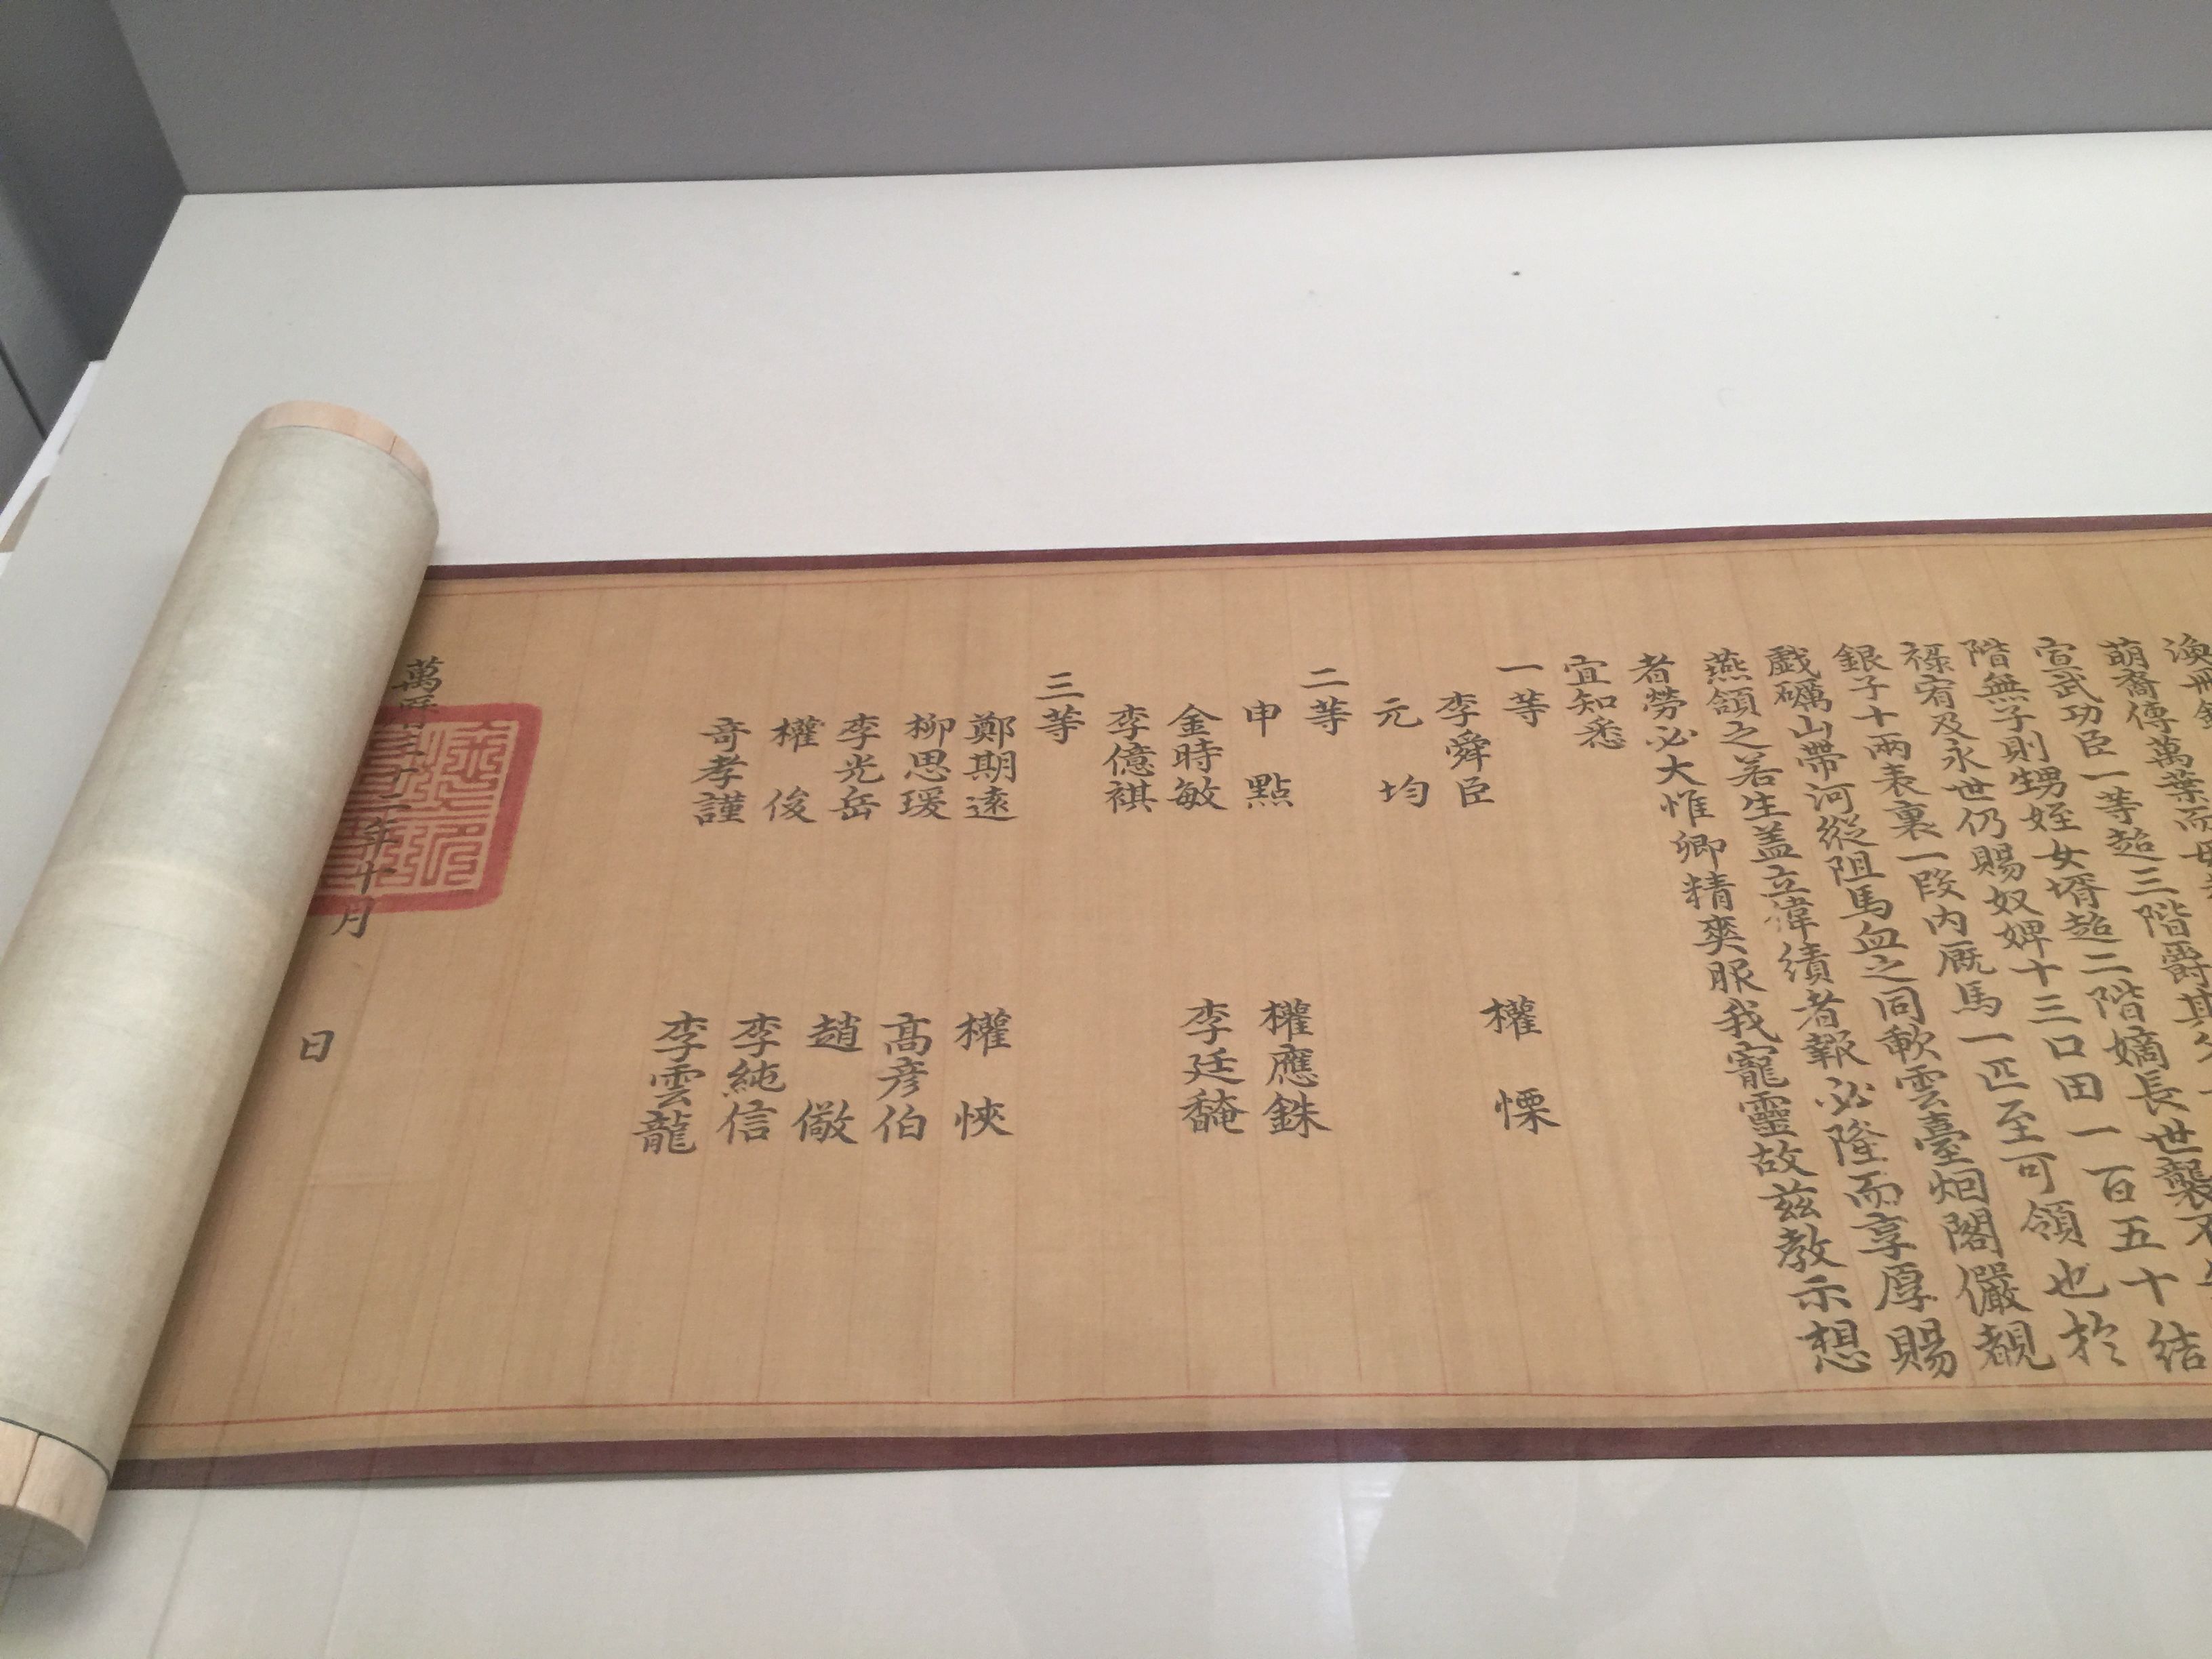 萌裔傳萬葉而
宣武功臣一等超三階爵其
階無子則甥姪女壻超二階嫡長世襲不
祿宥及永世仍賜奴婢十三口田一百五十結
銀子十兩表裏一段内厩馬一匹至可領也於
戲礪山帶河縱阻馬血之同歃雲臺烟閣儼覩
燕頷之若生盖立偉績者報必隆而享厚賜
者勞必大惟卿精爽服我寵靈故兹敎示想
宜知悉
一等
李舜臣 權慄
元均
二等
申點 權應銖
金時敏 李廷馣
李億祺
三等
鄭期遠 權悏
柳思瑗 高彦伯
李光岳 趙儆
權俊 李純信
奇孝謹 李雲龍
萬曆三十二年十月 日